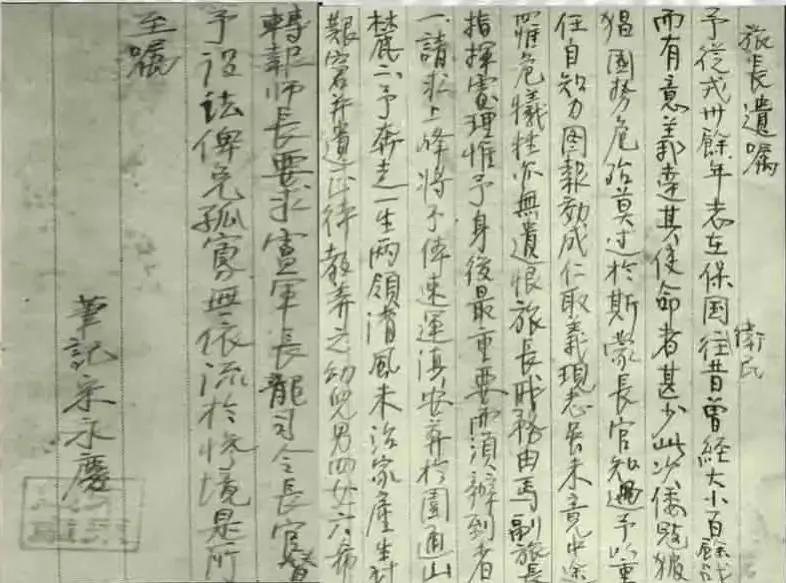 旅長遺囑
予從戎卅餘年志在保国衛民往昔曾経大小百餘戰
而有意義達其使命者甚少此次倭
猖国势危殆莫过於斯蒙長官知遇予以重
任自智力图報効成仁取義現志尚未竟中途
罹危犧牲亦無遺恨旅長职務由馬副旅長
指揮處理惟予身後最重要而須辦到者
一請求上峰將予体速運滇安葬於圓通山
麓二予奔走一生两領清風未治家產生計
艱窘并遺正待教養之幼兒男四女六希
轉報師長要求盧軍長龍司令長官
予設法俾免孤寡無依流於慘境是所
至囑
筆記宋永慶